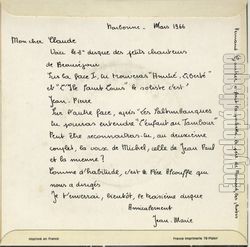 Narbonne - Mars 1966
Mon cher Claude
Voici le 1er disque des petits chanteurs
de Beauséjour
Sur la face I, tu trouveras "Amitié, Liberté"
et "L'Ile Saint Louis" le soliste c'est
Jean-Pierre
Sur l'autre face, après "Les Saltimbanques"
tu pourras entendre "L'enfant au Tambour"
Peut être reconnaîtras-tu, au deuxième
couplet, la voix de Michel, celle de Jean Paul
et la mienne ?
Comme d'habitude, c'est le Père
qui nous a dirigés
Je t'enverrai, bientôt, le troisième disque
Amicalement
Jean-Marie
Imprimé en France